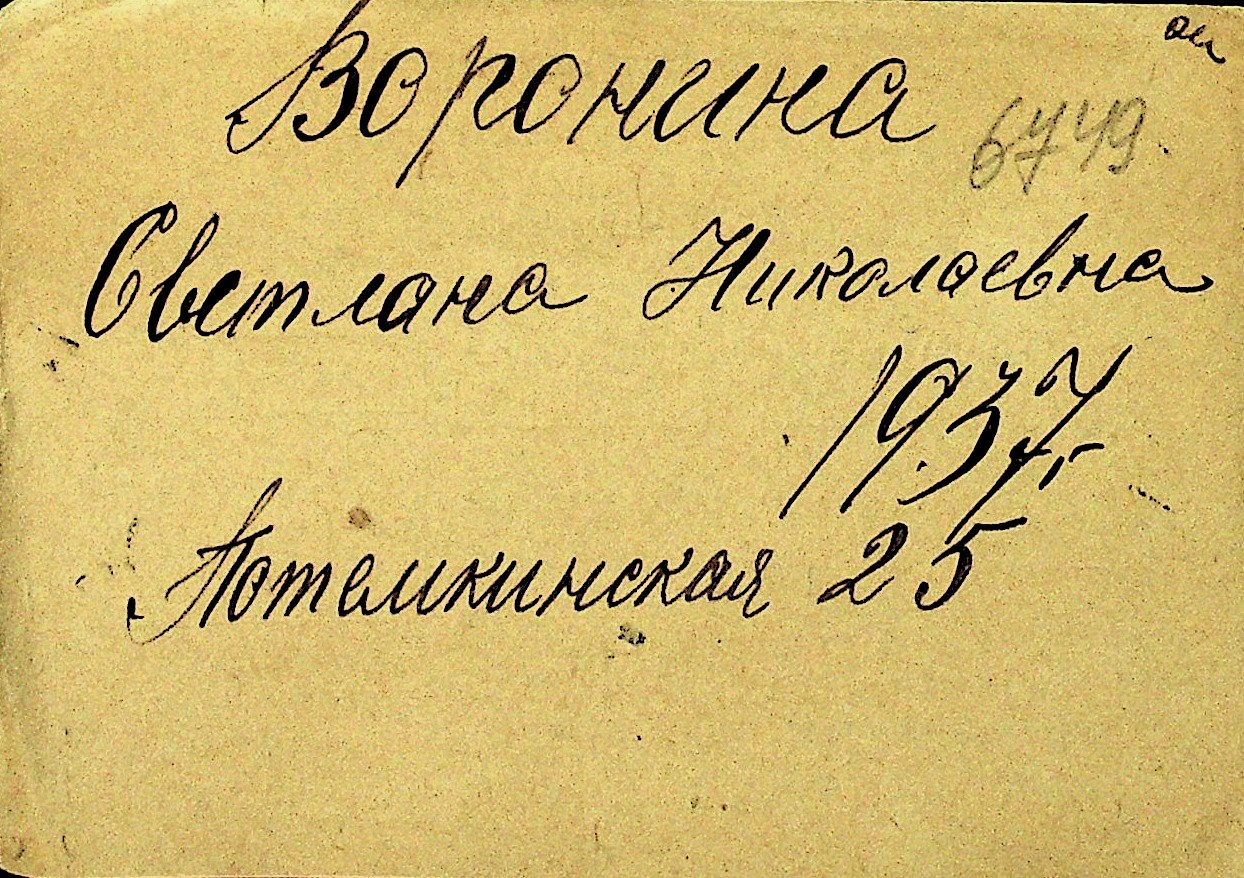 Воронина
6749
Светлана Николаевна
1937 г.
Потемкинская 25